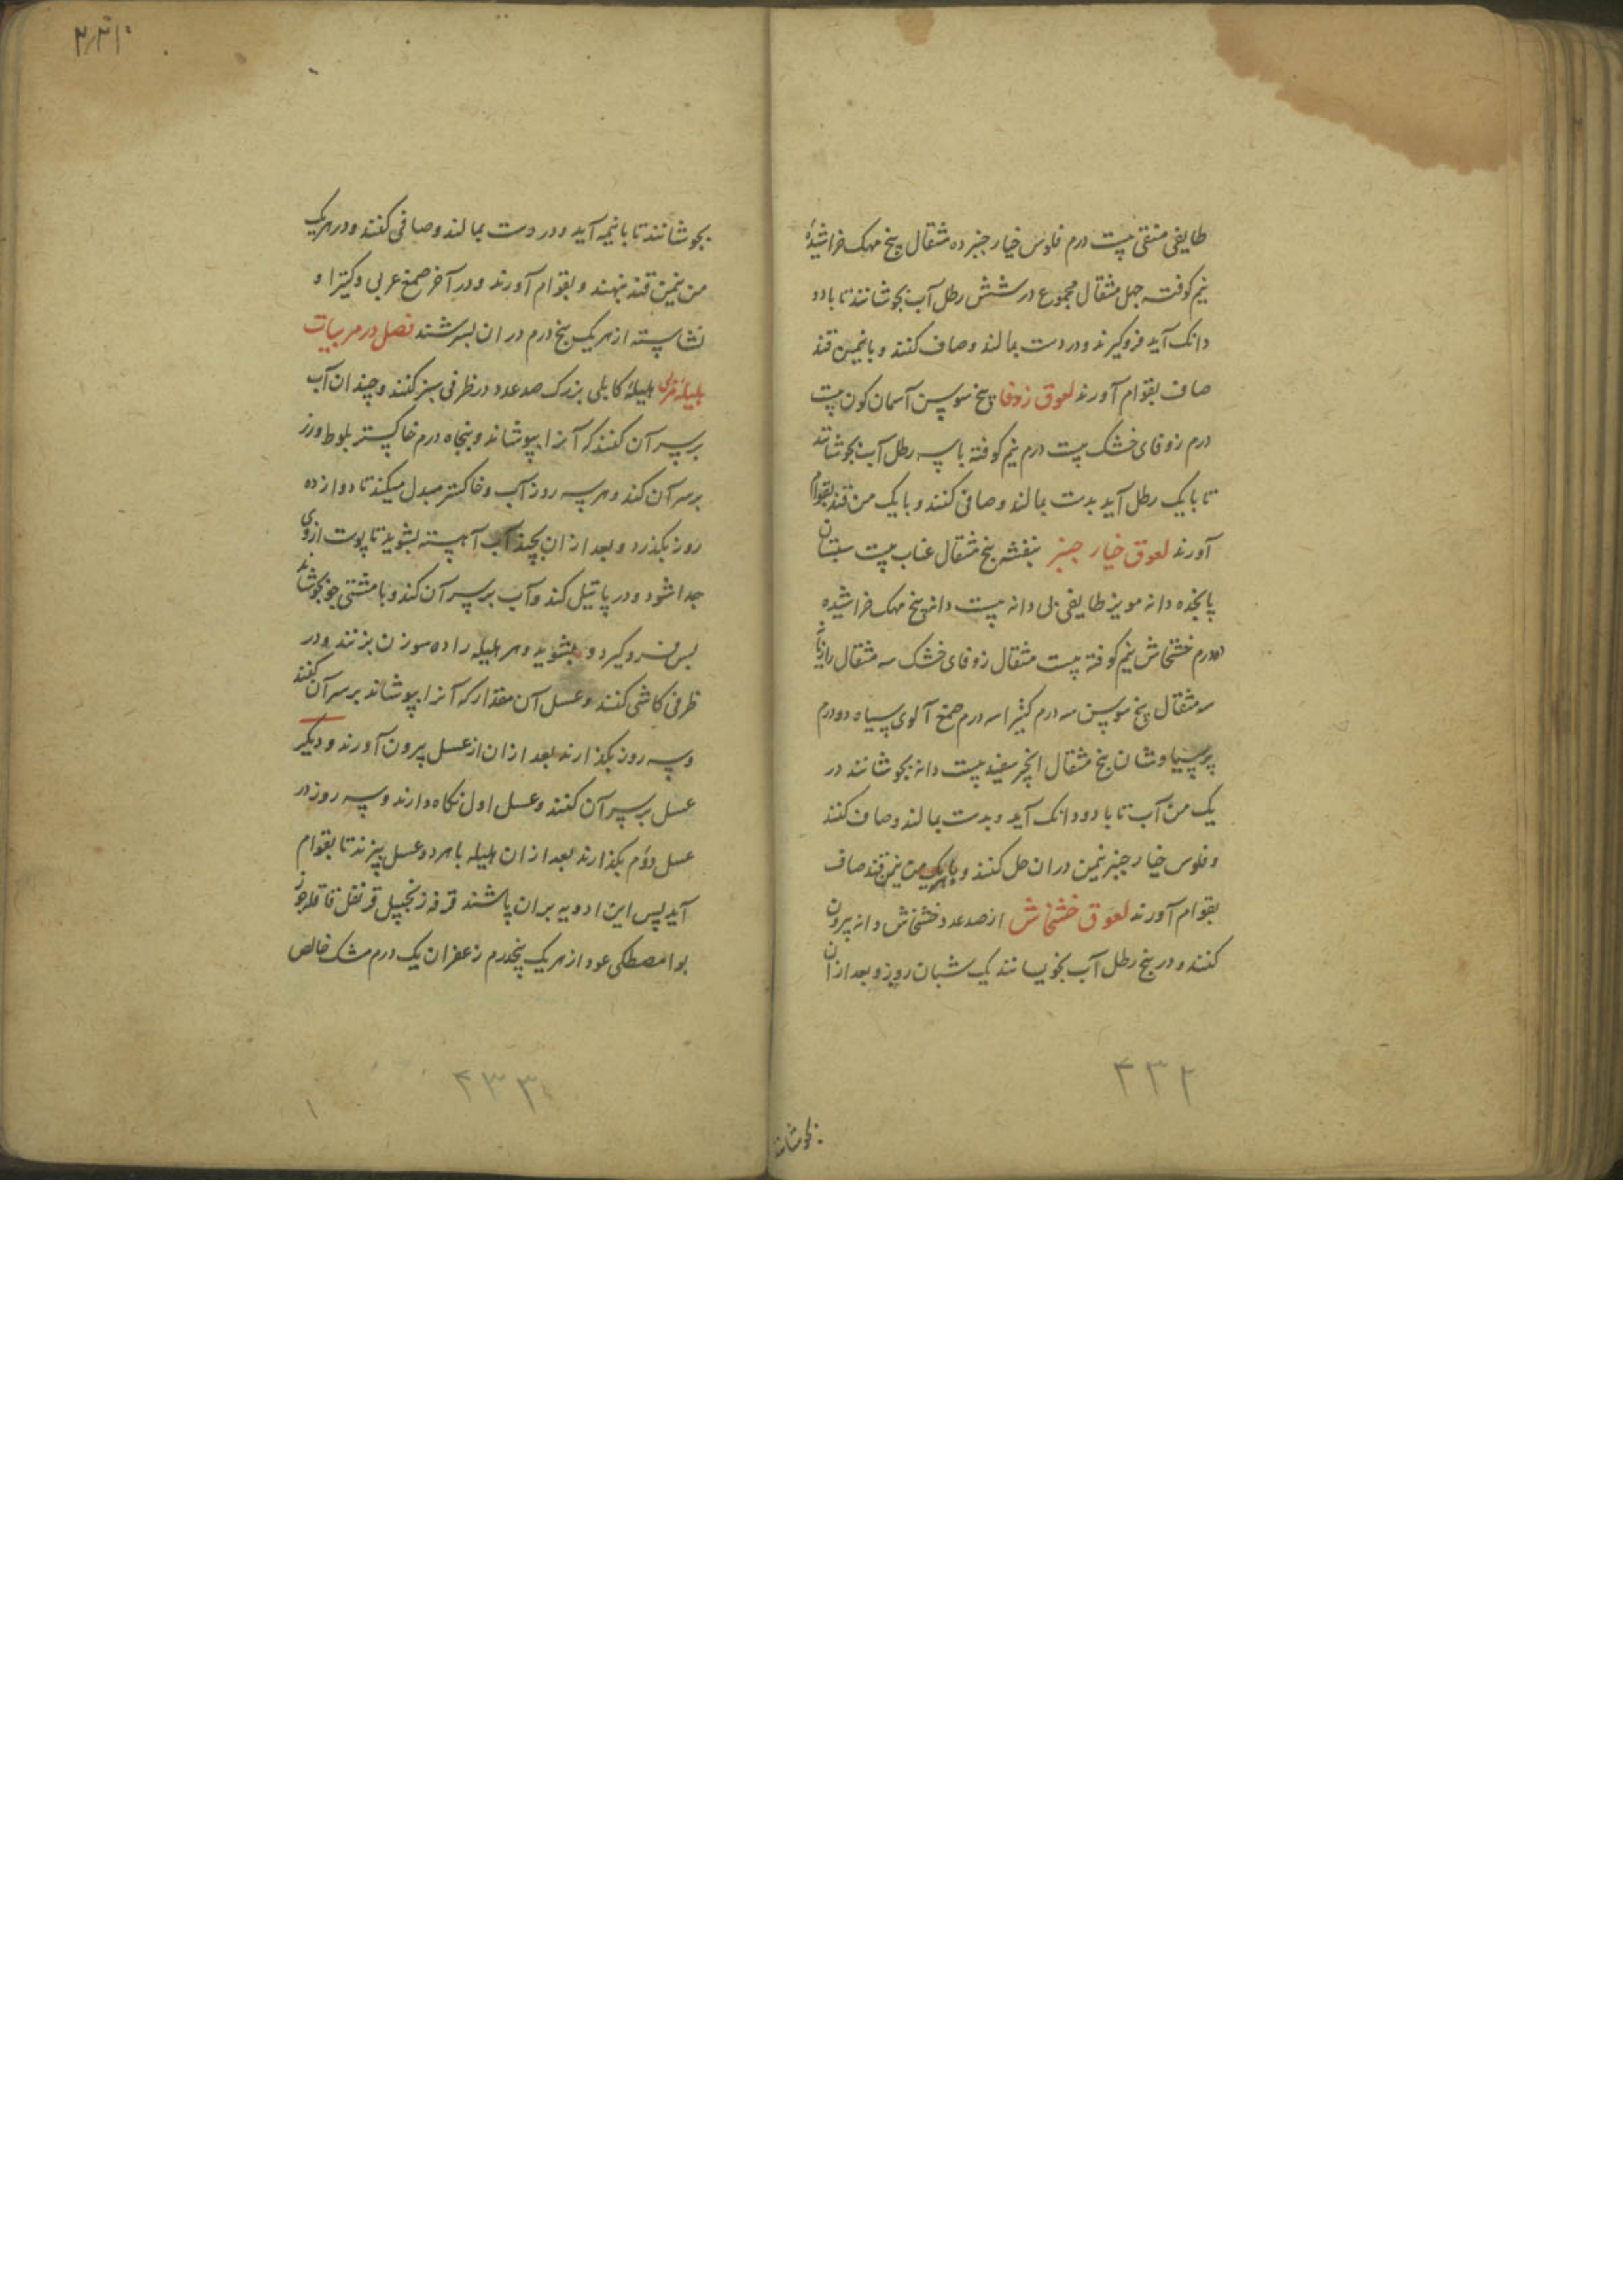 طایفی منقی بیست درم فلوس خیار چنبر ده مثقال بیخ مهک خراشیدهٔ
نیم کوفته چهل مثقال مجموع در شش رطل آب بجوشانند تا با دو
دانک آید فروکیرند و در دست بمالند و صاف کنند و با نیمن قند
صاف بقوام آورند لعوق زوفا بیخ سوسن آسمان کون بیست
درم زوفای خشک بیست درم نیم کوفته با سه رطل آب بجوشانند
تا با یک رطل آید بدست بمالند و صافی کنند و با یک من قند بقوام
آورند لعوق خیار چنبر بنفشه پنج مثقال عناب بیست سپستان
پانجده دانه مویز طایفی بی دانه بیست دانه بیخ مهک خراشیده
ده درم خشخاش نیم کوفته بیست مثقال زوفای خشک سه مثقال رازیانه
سه مثقال بیخ سوسن سه درم کتیرا سه درم صمغ آلوی سیاه دو درم
پرسیاوشان پنج مثقال انجیر سفید بیست دانه بجوشانند در
یک من آب تا با دو دانک آید و بدست بمالند و صاف کنند
و فلوس خیار چنبر نیمن دران حل کنند و با یک من نیمن قند صاف
بقوام آورند لعوق خشخاش از صد عدد خشخاش دانه بیرون
کنند و در پنج رطل آب بخویسانند یک شبان روز و بعد ازان
۲۳۲
بجوشانند
۲۳۱
بجوشانند تا با نیمه آید و در دست بمالند و صافی کنند و در هر یک
من نیمن قند نهند و بقوام آورند و در آخر صمغ عربی و کتیرا و
نشاسته از هر یک پنج درم دران بسرشند فصل در مربیات
هلیلهٔ مربی هلیلهٔ کابلی بزرک صد عدد در ظرفی سبز کنند و چندان آب
بر سر آن کنند که آنرا بپوشاند و پنجاه درم خاکستر بلوط و رز
بر سر آن کند و هر سه روز آب و خاکستر مبدل میکند تا دوازده
روز بکذرد و بعد ازان بچند آب آهسته بشوید تا پوست ازوی
جدا شود و در پاتیل کند و آب بر سر آن کند و با مشتی جو بجوشاند
پس فروکیرد و بشوید و هر هلیله را ده سوزن بزنند و در
ظرفی کاشی کنند و عسل آن مقدار که آنرا بپوشاند بر سر آن کنند
و سه روز بکذارند بعد ازان از عسل بیرون آورند و دیکر
عسل بر سر آن کنند و عسل اول نکاه دارند و سه روز در
عسل دوم بکذارند بعد ازان هلیله با هر دو عسل بپزند تا بقوام
آید پس این ادویه بران پاشند قرفه زنجبیل قرنفل قاقله جوز
بوا مصطکی عود از هر یک پنجدرم زعفران یک درم مشک خالص
۲۳۳